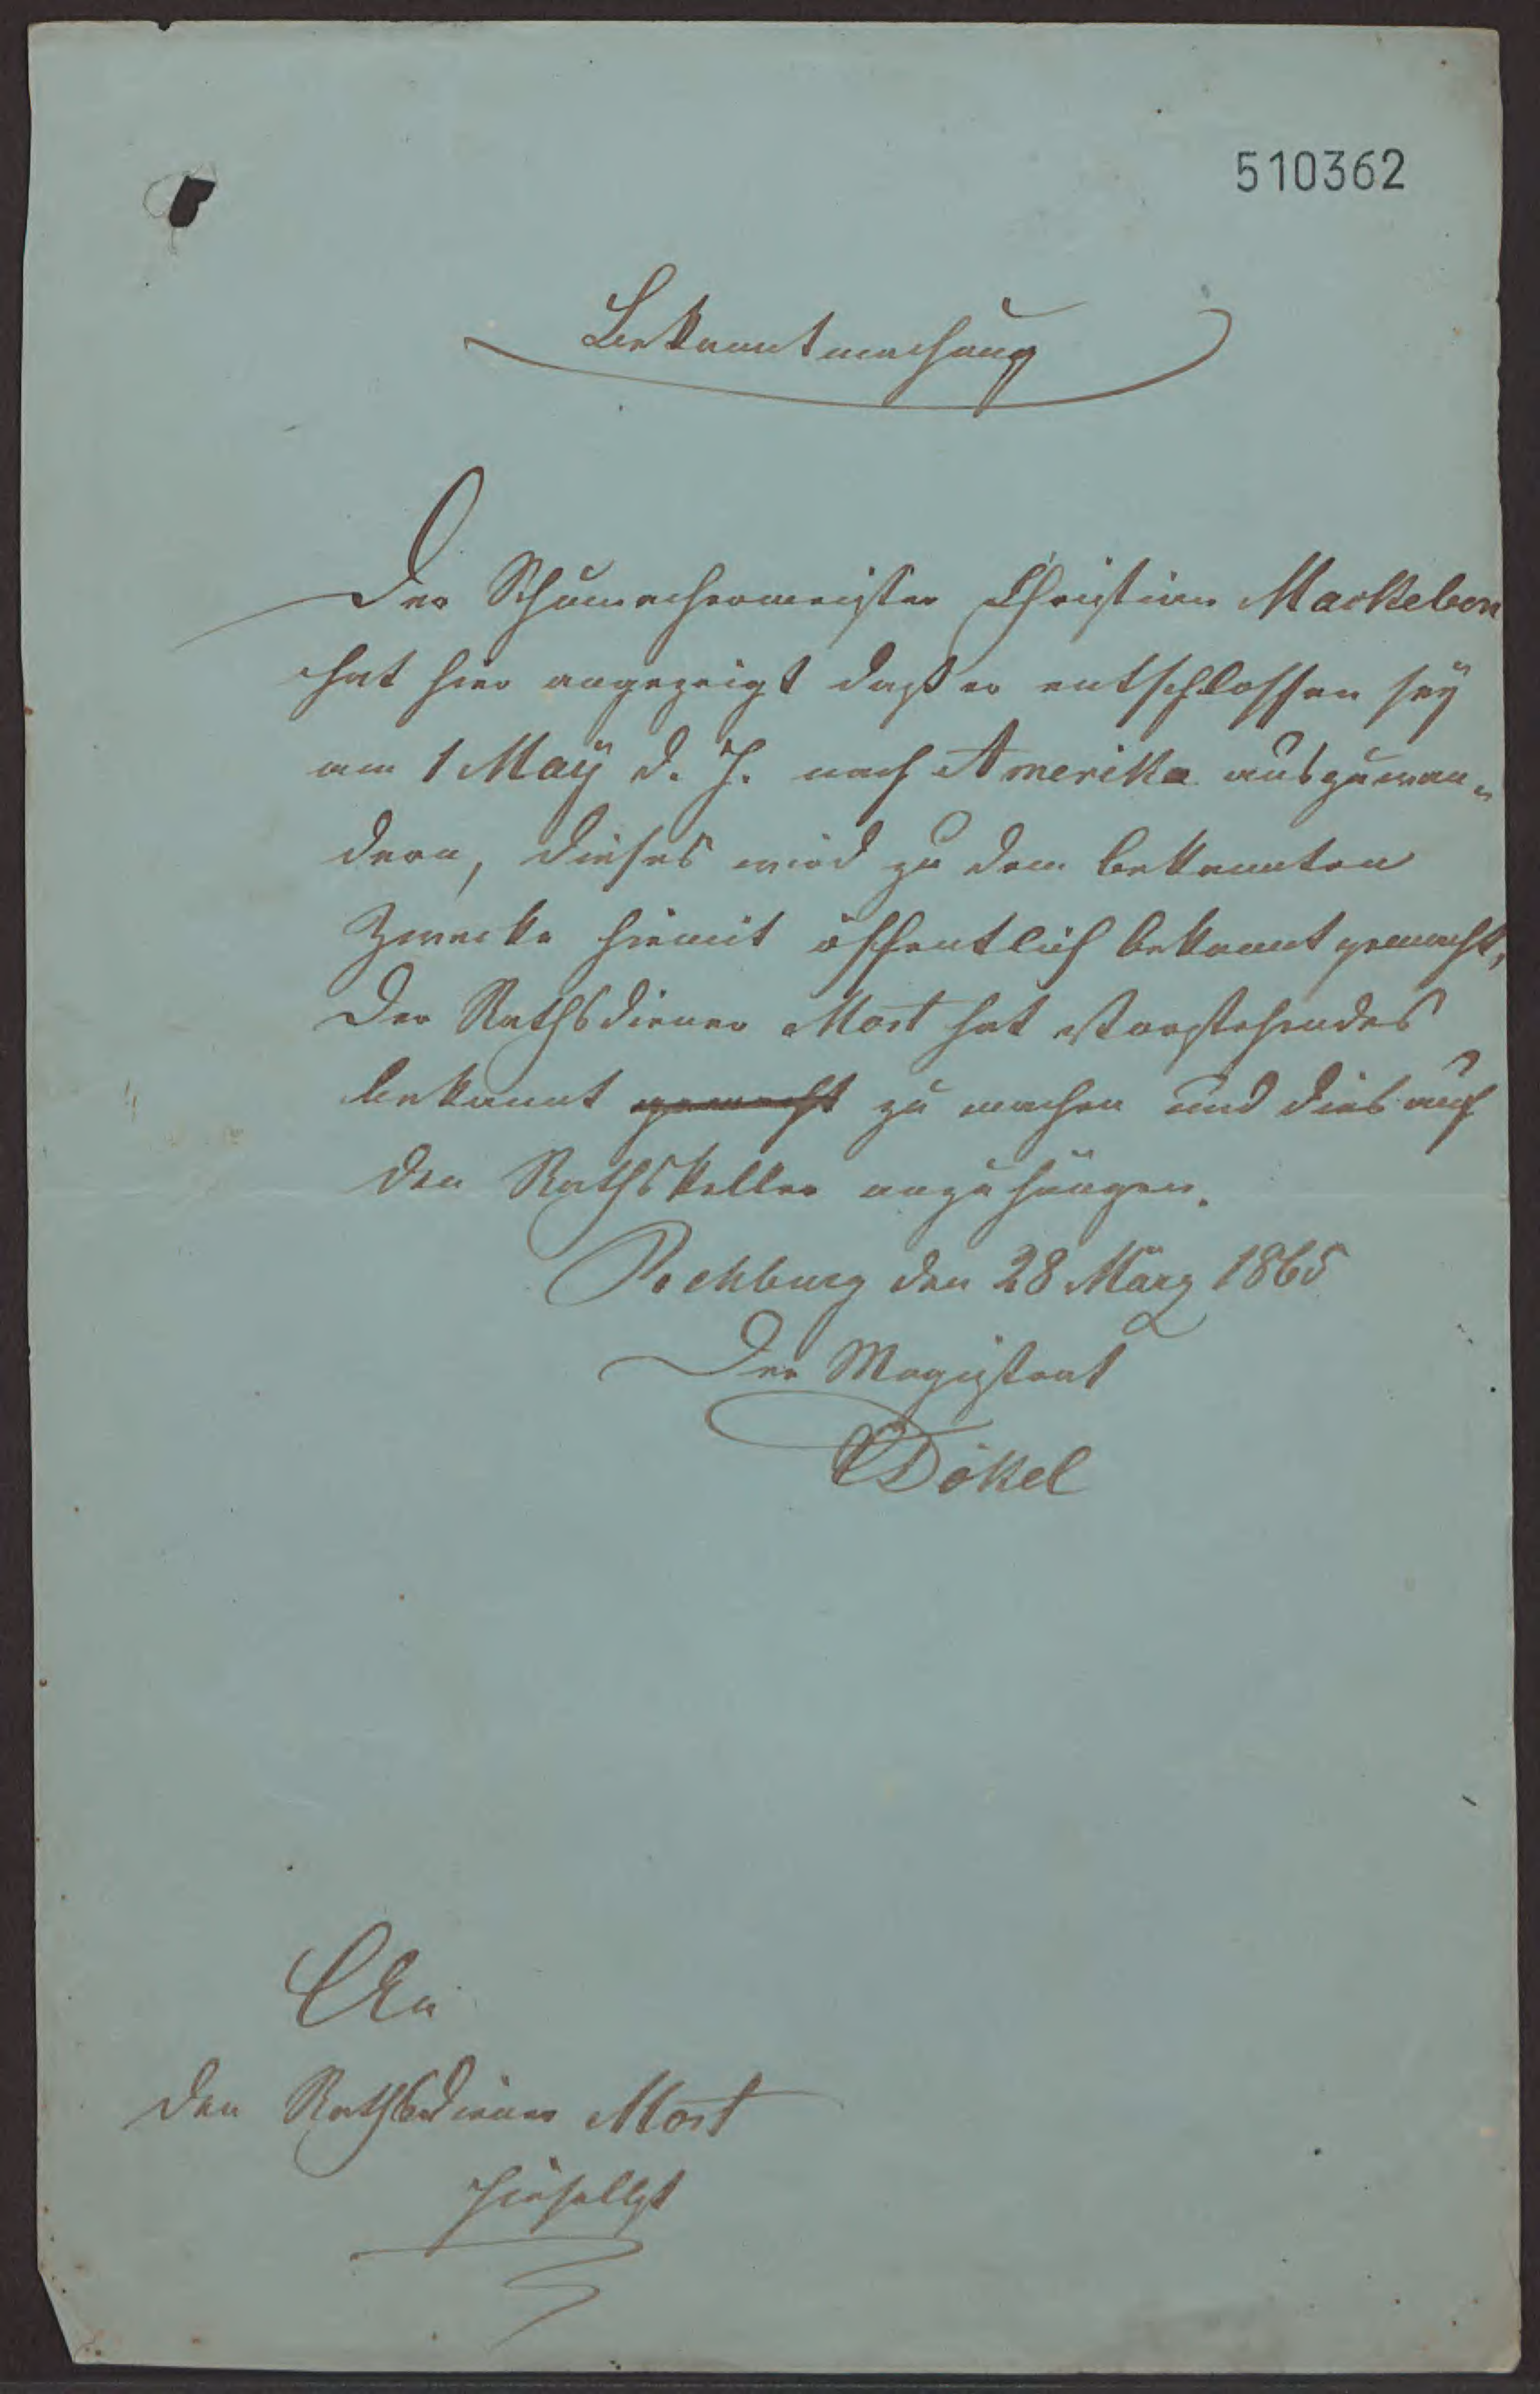 510362
Bekanntmachung
Der Schumachermeister Christian Mackeben
hat hier angezeigt daß er entschlossen sey
am 1 Maÿ d. J. nach Amerika auszuwan„
dern, dieses wird zu dem bekannten
Zwecke hiemit öffentlich bekannt gemacht,
Der Rathsdiener Most hat Vorstehendes
bekannt gemacht zu machen und dies auf
den Rathskeller anzuhängen.
Rehburg den 28 März 1865
Der Magistrat
Dökel
An
den Rathsdiener Most
hieselbst